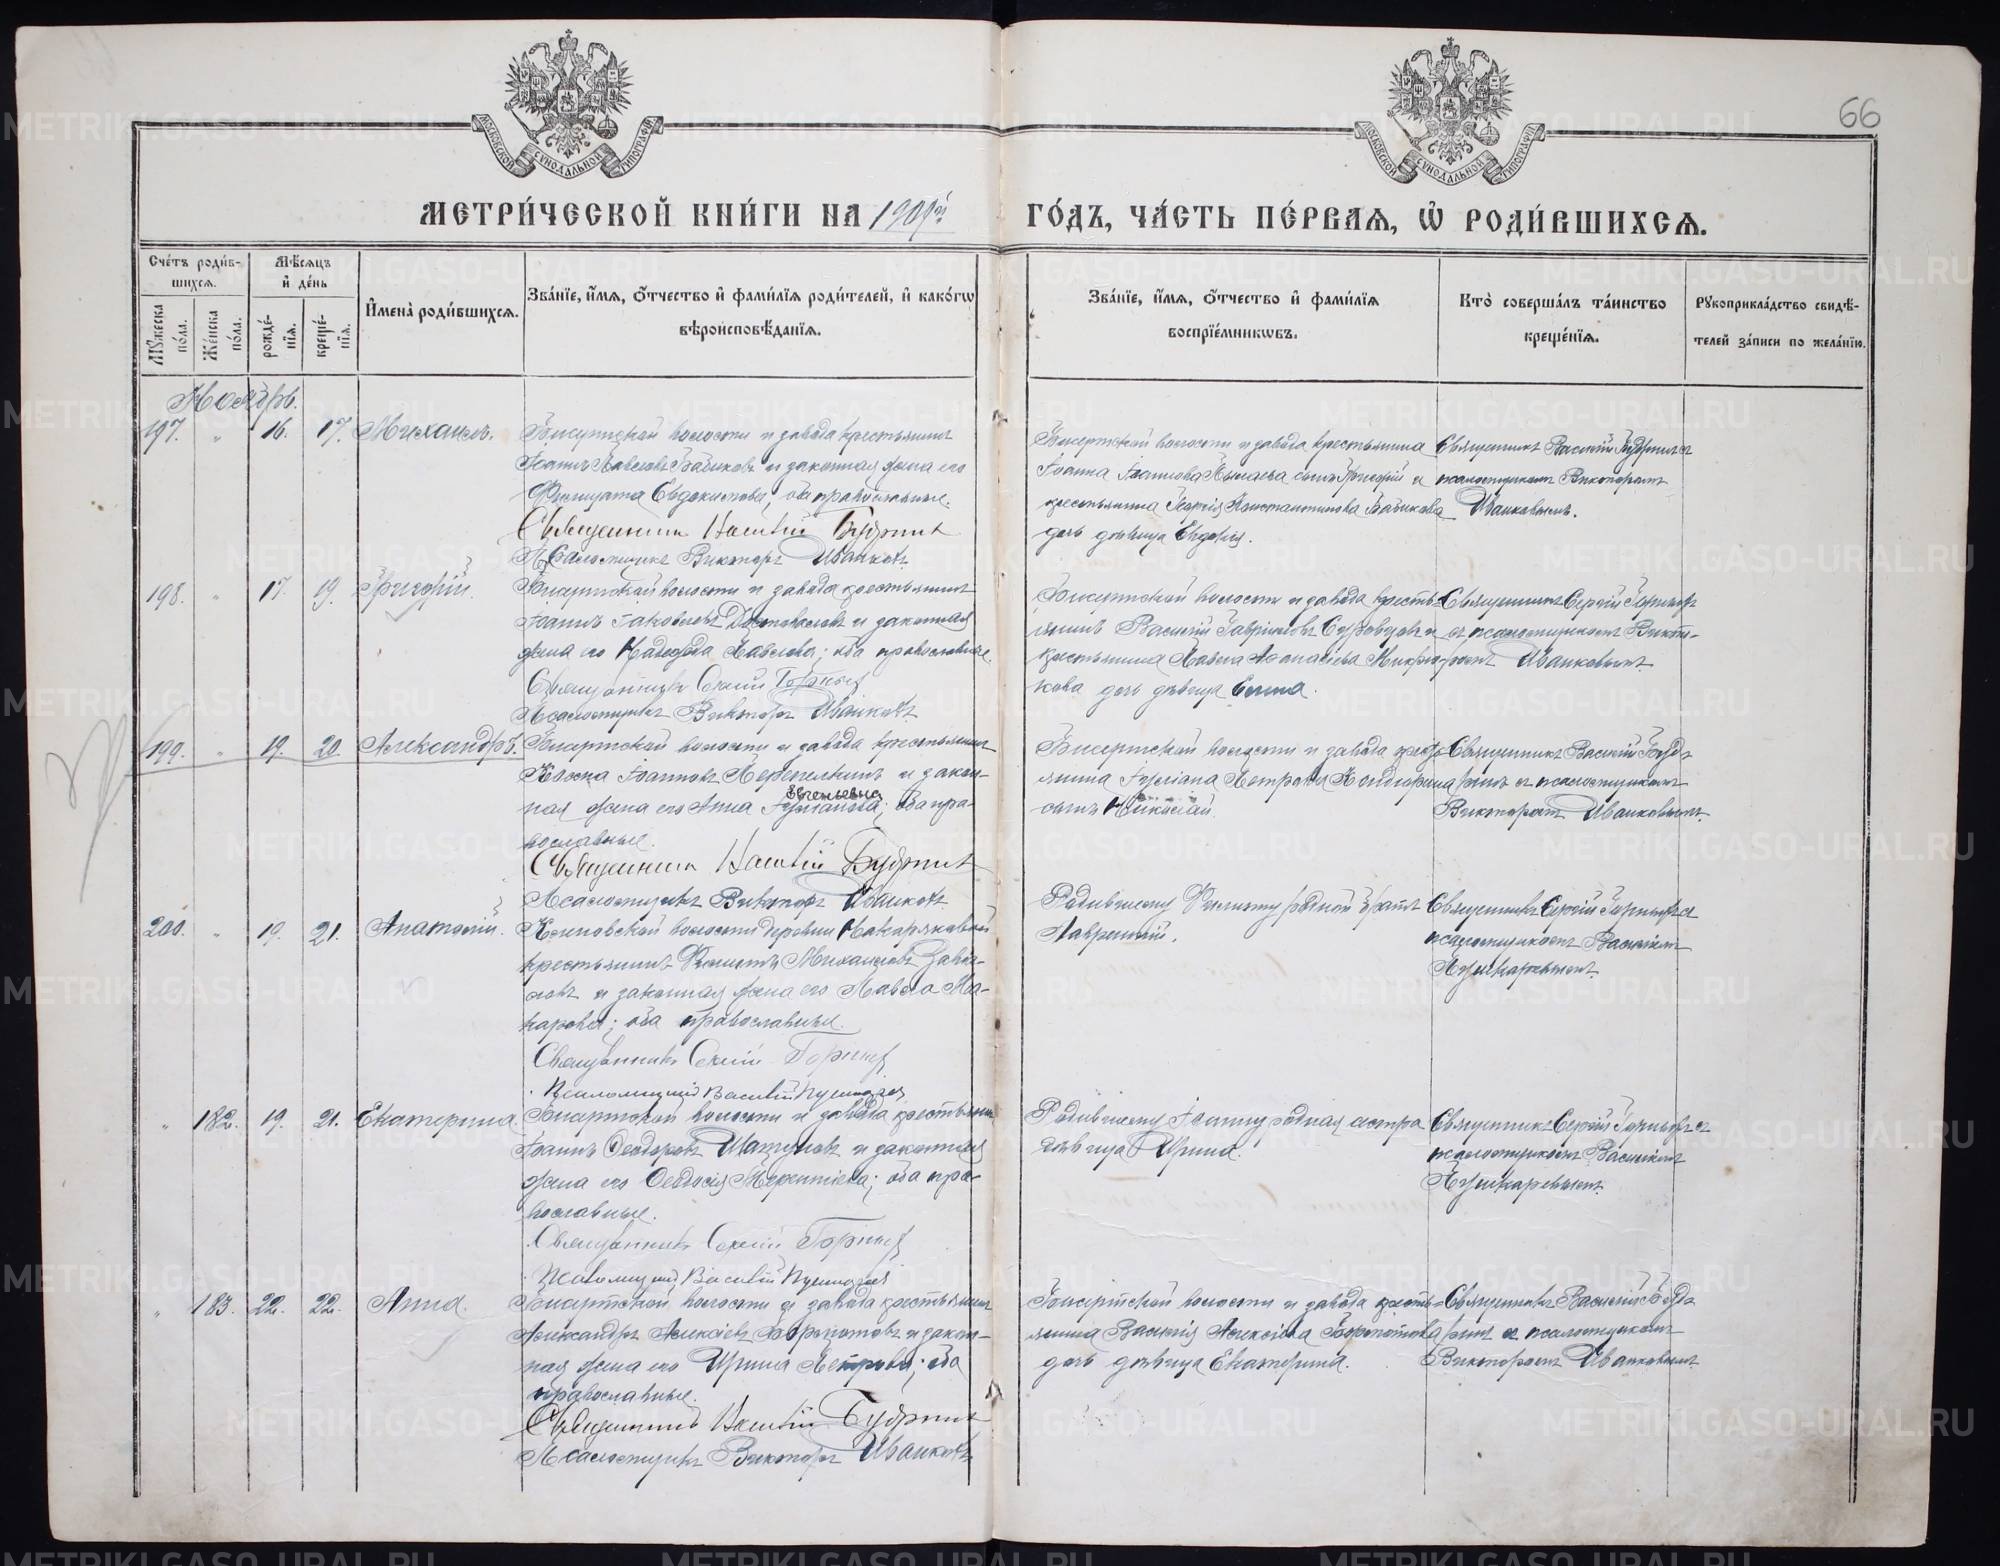 66
МОСКОВСКОЙ СѴНОДАЛЬНОЙ ТИПОГРАФІИ
МОСКОВСКОЙ СѴНОДАЛЬНОЙ ТИПОГРАФІИ
МЕТРИ́ЧЕСКОЙ КНИ́ГИ НА 1909й ГО́ДЪ, ЧА́СТЬ ПЕ́РВАЯ, Ѡ РОДИ́ВШИХСЯ.
Сче́тъ роди́в-
шихся.
Мѣ́сяцъ
и де́нь
Мꙋжеска по́ла.
Же́нска по́ла.
рожде́-нїя.
креще́-нїя.
Имена̀ роди́вшихся.
Зва́нїе, и́мя, ѻ́тчество и фами́лїя роди́телей, и како́гѡ
вѣроисповѣ́данїя.
Зва́нїе, и́мя, ѻ́тчество и фами́лїя
воспрїе́мникѡвъ.
Кто̀ соверша́лъ та́инство
креще́нїя.
Рꙋкоприкла́дство свидѣ́-
телей за́писи по жела́нїю.
Ноябрь.
197. " 16. 17. Михаилъ.
Бисертской волости и завода крестьянинъ
Іоаннъ Павловъ Бабиковъ и законная жена его
Филицата Евдокимова; оба православные.
Священникъ Василій Будринъ
Псаломщикъ Викторъ Иванковъ.
Бисертской волости и завода крестьянина
Іоанна сынъ Григорій и
крестьянина Георгія Константинова Бабикова
дочь дѣвица Евдокія.
Священникъ Василій Будринъ съ
псаломщикомъ Викторомъ
Иванковымъ.
198. " 17. 19. Григорій.
Бисертской волости и завода крестьянинъ
Іоаннъ Іаковлевъ и законная
жена его Надежда Павлова; оба православные.
Священникъ Сергій Горныхъ
Псаломщикъ Викторъ Иванковъ.
Бисертской волости и завода кресть-
янинъ Василій Гавріиловъ и
крестьянина Павла Аѳанасіева
кова дочь дѣвица Елена.
Священникъ Сергій Горныхъ
съ псаломщикомъ Викто-
ромъ Иванковымъ.
199. " 19. 20. Александръ.
Бисертской волости и завода крестьянинъ
Іоанновъ Перепелкинъ и закон-
ная жена его Анна Евгеньевна; оба пра-
вославные.
Священникъ Василій Будринъ
Псаломщикъ Викторъ Иванковъ.
Бисертской волости и завода кресть-
янина Іуліана Петрова
сынъ Николай.
Священникъ Василій Буд-
ринъ съ псаломщикомъ
Викторомъ Иванковымъ.
200. " 19. 21. Анатолій.
Кленовской волости деревни Накаряковой
крестьянинъ Филиппъ Михаиловъ
и законная жена его Павла Ма-
карова; оба православные.
Священникъ Сергій Горныхъ
Псаломщикъ Василій Пушкаревъ
Родившему Филиппу родной братъ
Лаврентій.
Священникъ Сергій Горныхъ съ
псаломщикомъ Василіемъ
Пушкаревымъ.
" 182. 19. 21. Екатерина.
Бисертской волости и завода крестьянинъ
Іоаннъ Ѳеодоровъ Шатуновъ и законная
жена его Ѳеодосія Терентіева; оба пра-
вославные.
Священникъ Сергій Горныхъ
Псаломщикъ Василій Пушкаревъ
Родившему Іоанну родная сестра
дѣвица Ирина.
Священникъ Сергій Горныхъ съ
псаломщикомъ Василіемъ
Пушкаревымъ.
" 183. 22. 22. Анна.
Бисертской волости и завода крестьянинъ
Александръ Алексіевъ Бормотовъ и закон-
ная жена его Ирина Петрова; оба
православные.
Священникъ Василій Будринъ
Псаломщикъ Викторъ Иванковъ
Бисертской волости и завода кресть-
янина Василія Алексіева Бормотова
дочь дѣвица Екатерина.
Священникъ Василій Буд-
ринъ съ псаломщикомъ
Викторомъ Иванковымъ.
METRIKI.GASO-URAL.RU